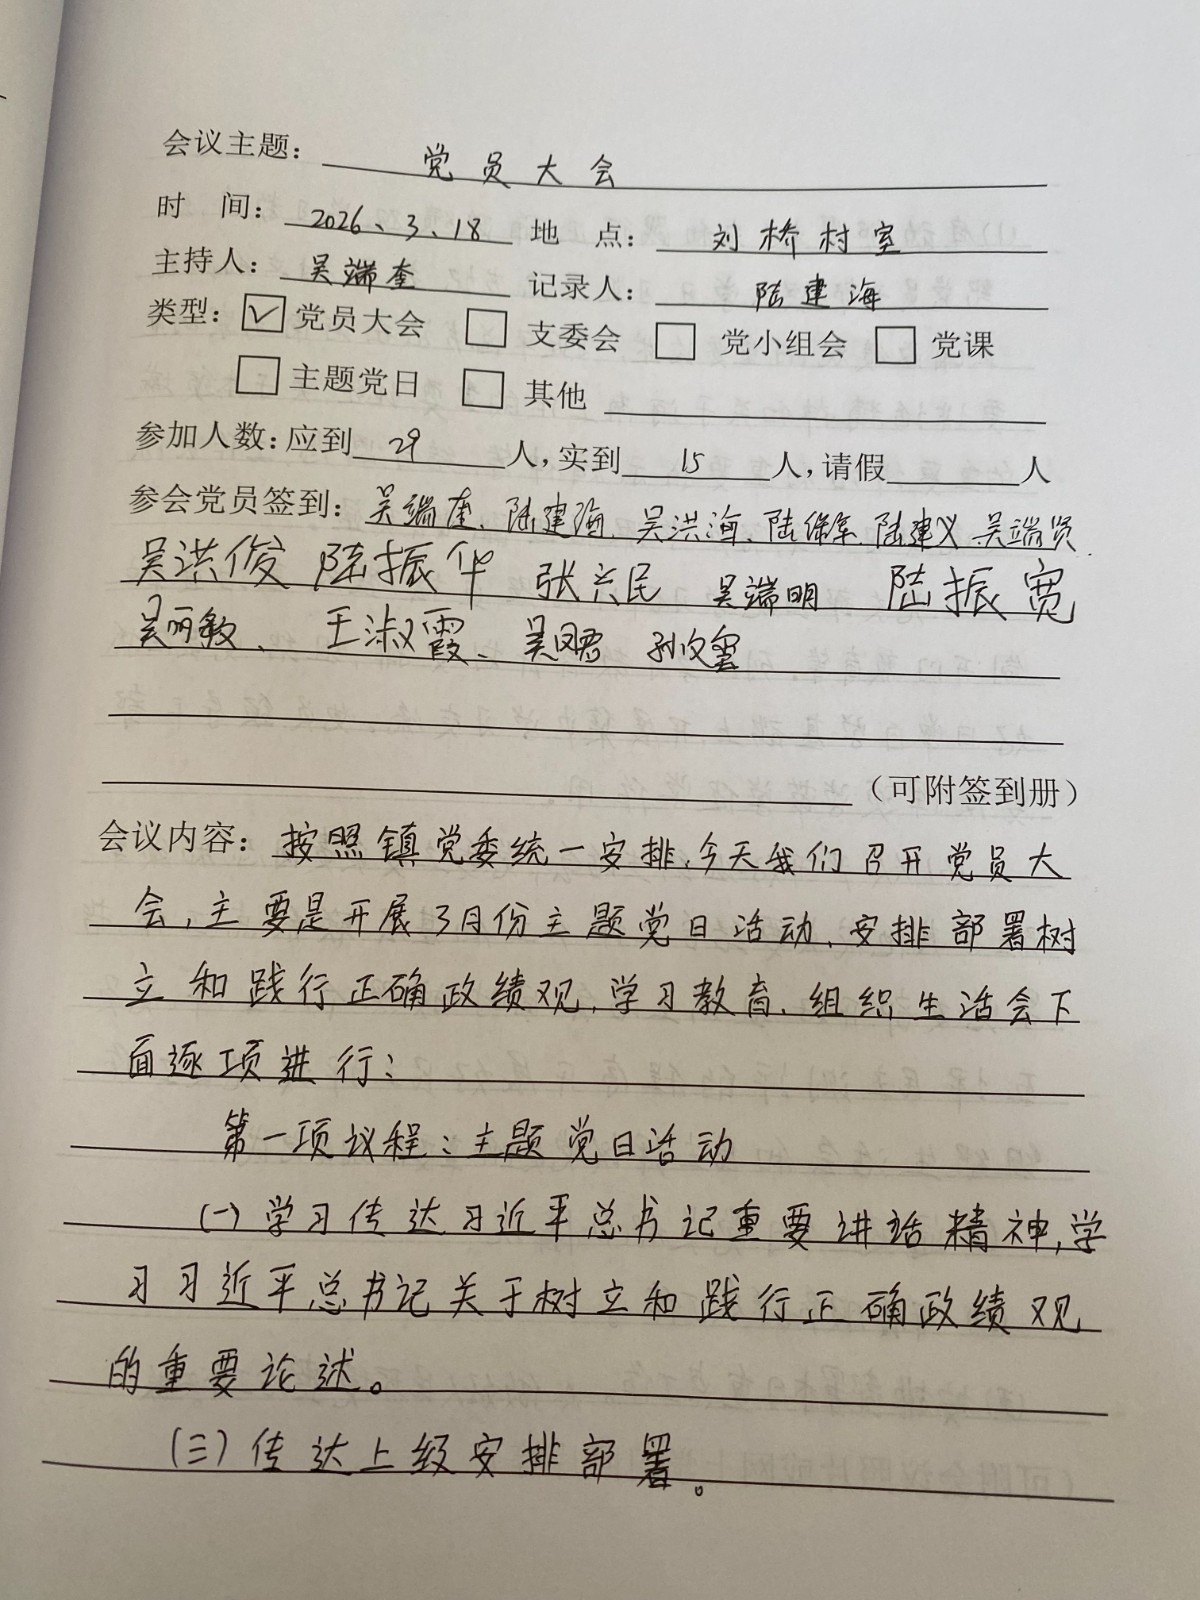 会议主题：党员大会
时 间：2026、3、18 地 点：刘桥村室
主持人：吴端奎 记录人：陆建海
类型：☑党员大会 □支委会 □党小组会 □党课
□主题党日 □其他
参加人数：应到29人，实到15人，请假 人
参会党员签到：吴端奎、陆建海、吴洪海、陆保军、陆建义、吴端贤
吴洪俊 陆振华 张六民 吴端明 陆振宽
吴丽敏、王淑霞、吴 孙文
（可附签到册）
会议内容：按照镇党委统一安排，今天我们召开党员大
会，主要是开展3月份主题党日活动、安排部署树
立和践行正确政绩观，学习教育、组织生活会下
面逐项进行：
第一项议程：主题党日活动
(一)学习传达习近平总书记重要讲话精神，学
习习近平总书记关于树立和践行正确政绩观
的重要论述。
(三)传达上级安排部署。